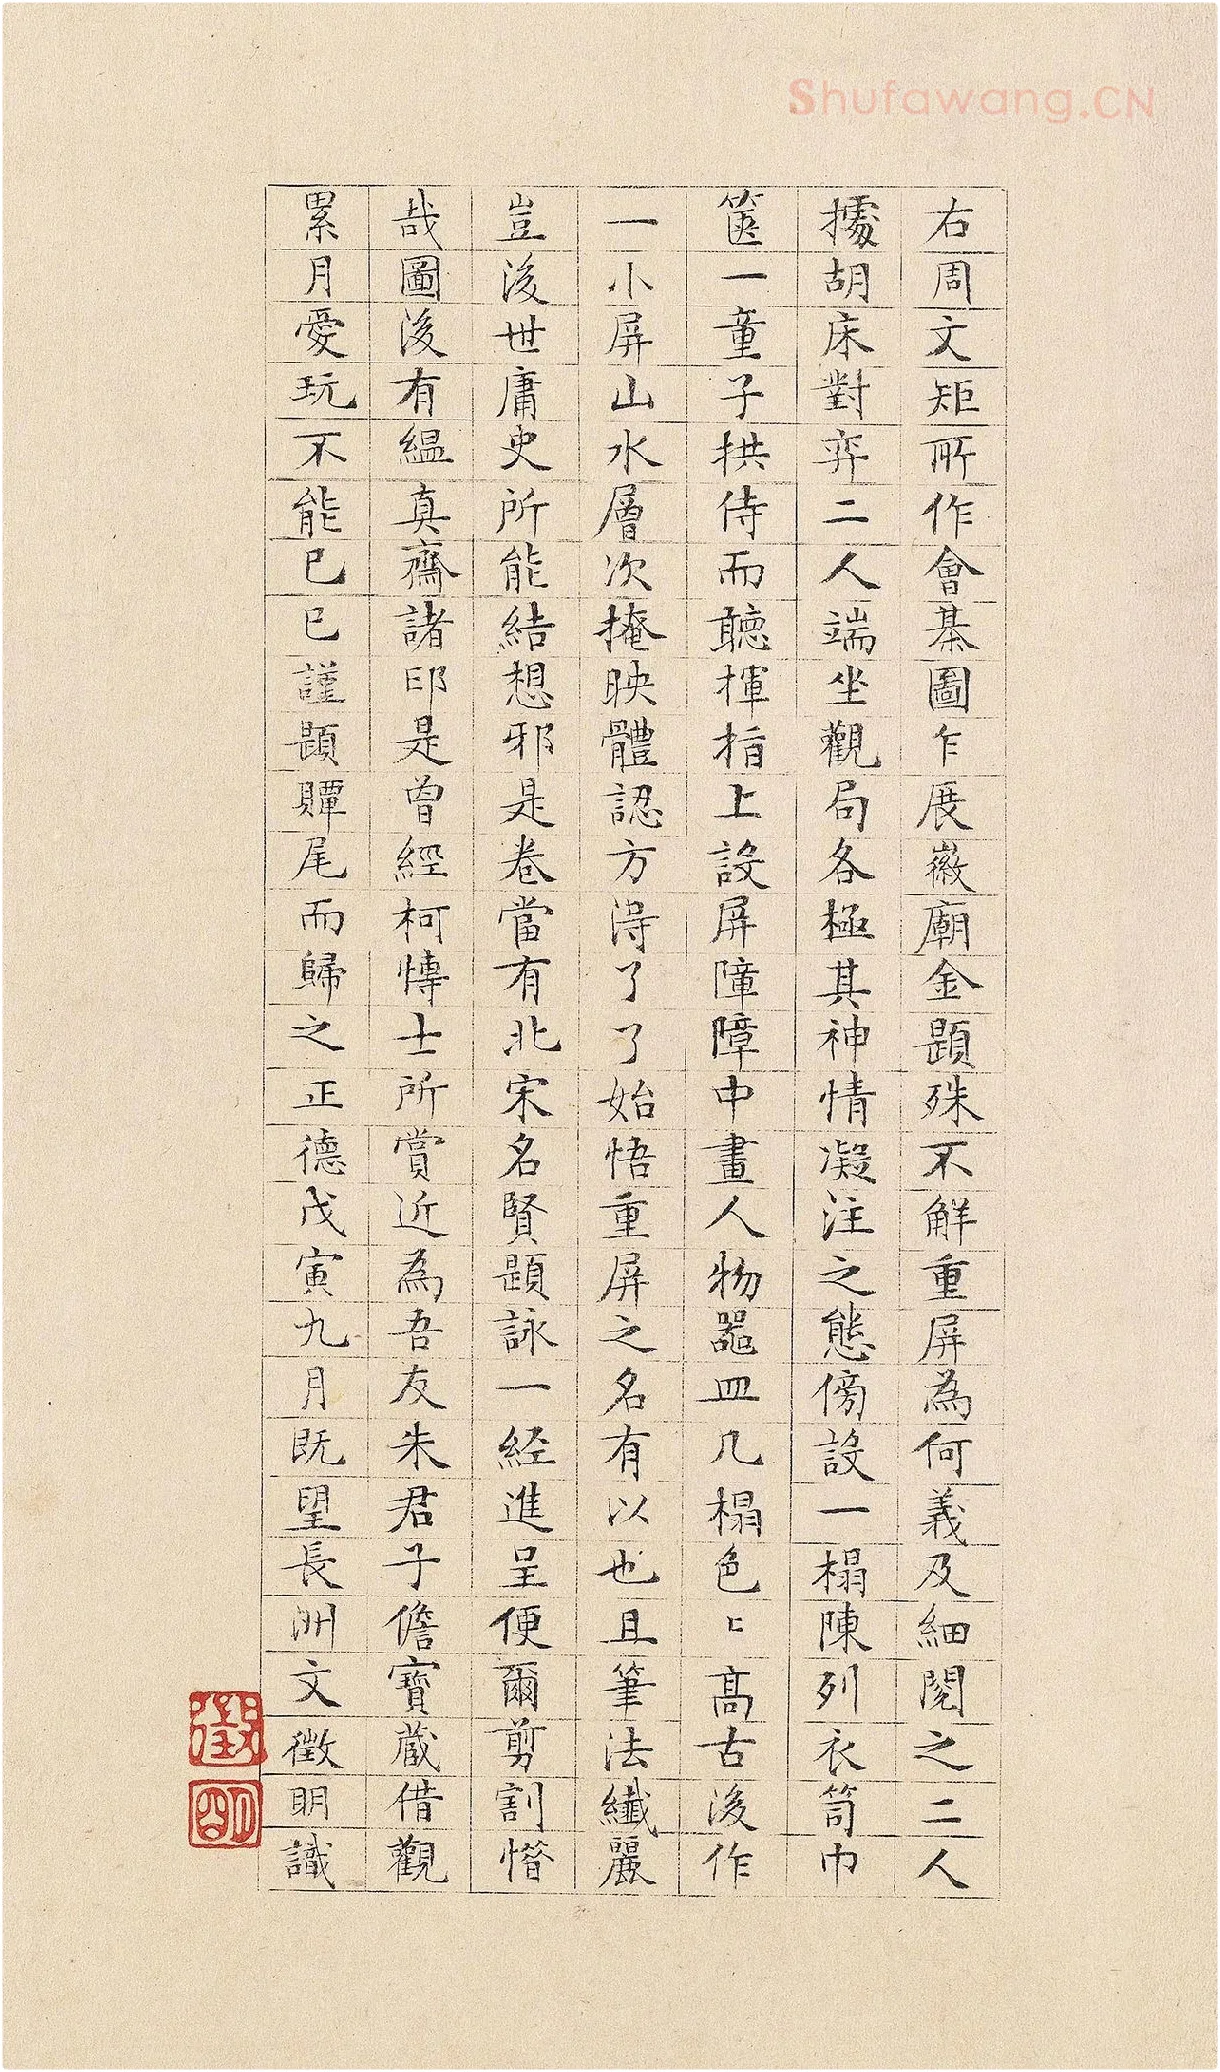 Shufawang.CN
右周文矩所作會棊圖乍展徽廟金題殊不觧重屏為何義及細閱之二人
據胡床對弈二人端坐觀局各極其神情凝注之態傍設一榻陳列衣笥巾
篋一童子拱侍而聽揮指上設屏障障中畫人物器皿几榻色〻高古後作
一小屏山水層次掩映體認方得了了始悟重屏之名有以也且筆法纖麗
豈後世庸史所能結想邪是卷當有北宋名賢題詠一经進呈便爾剪割惜
哉圖後有緼真齋諸印是曾經柯博士所賞近為吾友朱君子儋寶藏借觀
累月愛玩不能已已謹題贉尾而歸之正德戊寅九月既望長洲文徵明識
徵
明